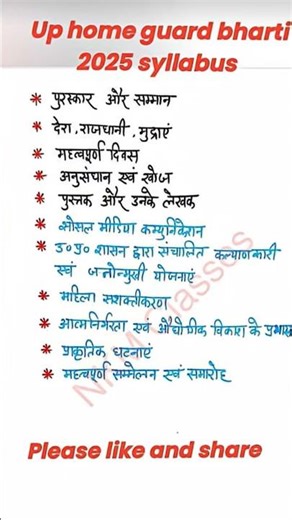 Up home guard bharti
2025 syllabus
* पुरस्कार और सम्मान
* देश, राजधानी, मुद्राएं
* महत्वपूर्ण दिवस
* अनुसंधान एवं खोज
* पुस्तक और उनके लेखक
* सोसल मीडिया कम्युनिकेशन
* उ०प्र० शासन द्वारा संचालित कल्याणकारी
एवं जनोन्मुखी योजनाएं
* महिला सशक्तीकरण
* आत्मनिर्भरता एवं औद्योगिक विकास के प्रभाव
* प्राकृतिक घटनाएं
* महत्वपूर्ण सम्मेलन एवं समारोह
Classes
Please like and share